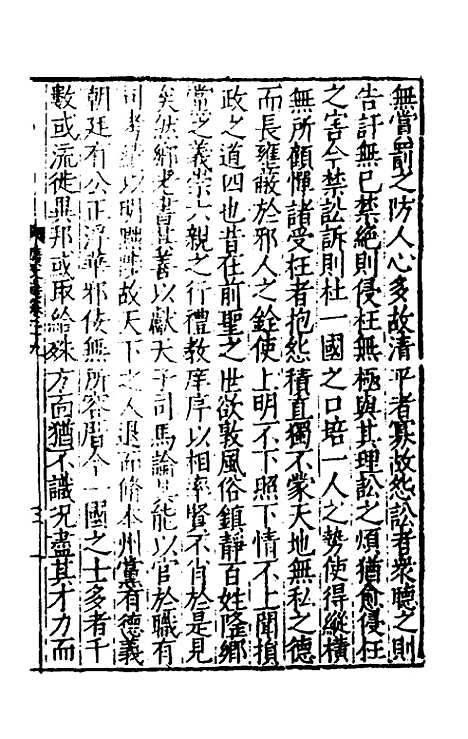 無賞罰之防人心多故清平者寡故怨訟者衆聽之則
告訐無已禁絶則侵枉無極與其理訟之煩猶愈侵枉
之害今禁訟訴則杜一國之口培一人之勢使得縱橫
無所顧憚諸受枉者抱怨積直獨不蒙天地無私之德
而長壅蔽於邪人之銓使上明不下照下情不上聞損
政之道四也昔在前聖之世欲敦風俗鎮靜百姓隆鄉
黨之義崇六親之行禮教庠序以相率賢不肖於是見
矣然鄉老書其善以獻天子司馬論其能以官於職有
司考績以明黜陟故天下之人退而脩本州黨有德義
朝廷有公正浮華邪佞無所容厝今一國之士多者千
數或流徙異邦或取給殊方面猶不識况盡其才力而